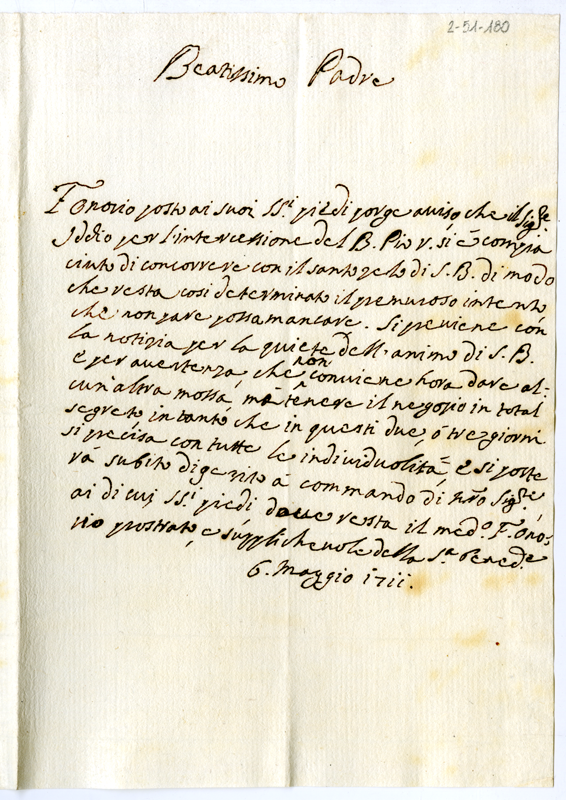 2-51-180
Beatissimo Padre
F. Onorio posto ai suoi SS.i piedi porge auiso che il Sig.re
Iddio per l'intercessione del B. Pio v. si è compia
ciuto di concorrere con il santo zelo di S. B. di modo
che resta cosi determinato il premuroso intento
che non pare possa mancare. Si preuiene con
la notizia per la quiete dell'animo di S. B.
e per auertenza, che non conuiene hora dare al-
cun'altra mossa, mà tenere il negozio in total
segreto, in tanto che in questi due, ò tre giorni
si precisa con tutte le indiuidualità, e si porte
rà subito digerito à commando di nro Sig.re
ai di cui SS.i piedi doue resta il med.o F. Ono-
rio prostrato, e supplicheuole della S.a Bened.e
6. Maggio 1711.